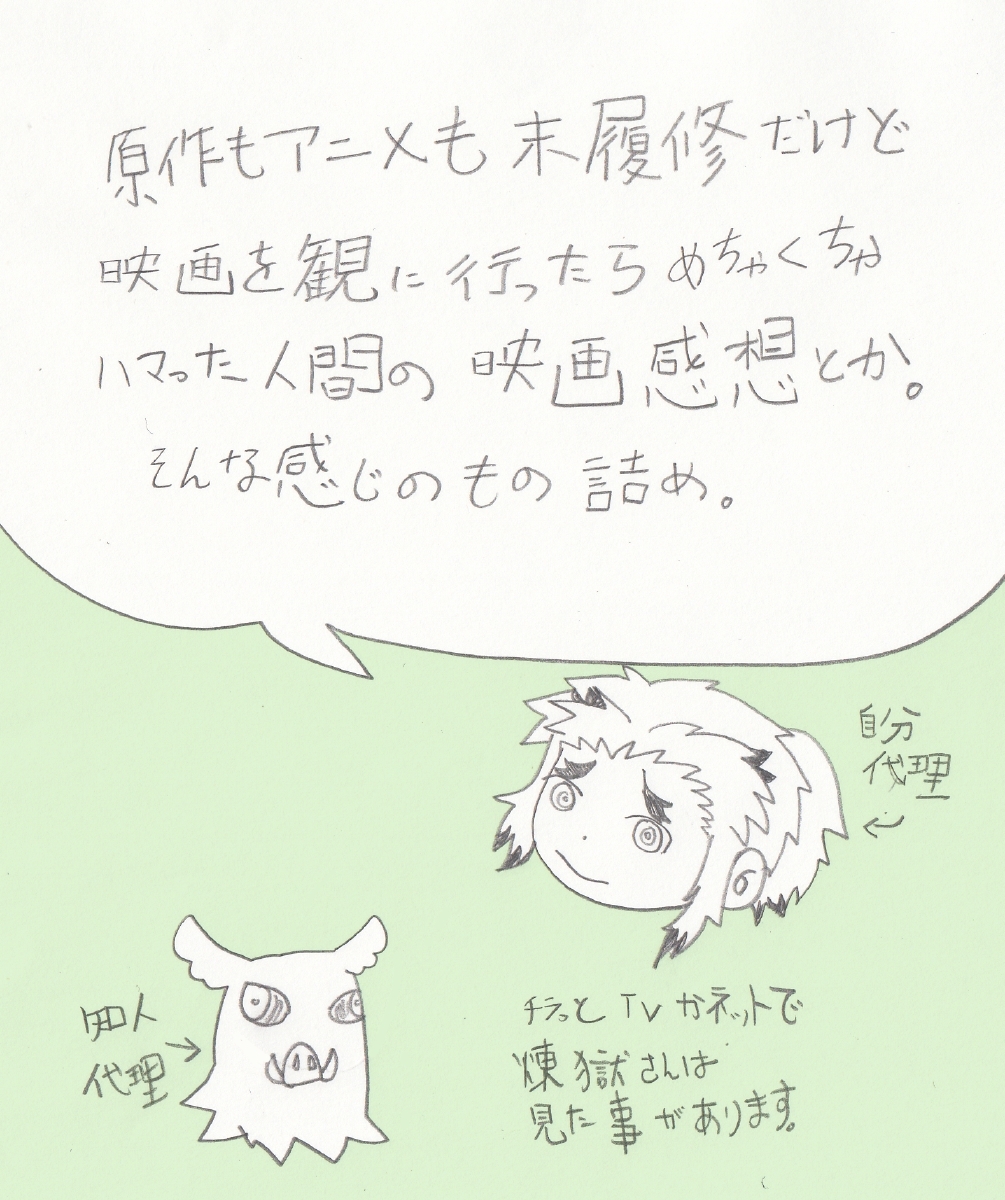 原作もアニメも末履修だけど
映画を観に行ったらめちゃくちゃ
ハマった人間の映画感想とか。
そんな感じのもの詰め。
自分
代理
←
知人
代理→
チラっとTVかネットで
煉獄さんは
見た事があります。